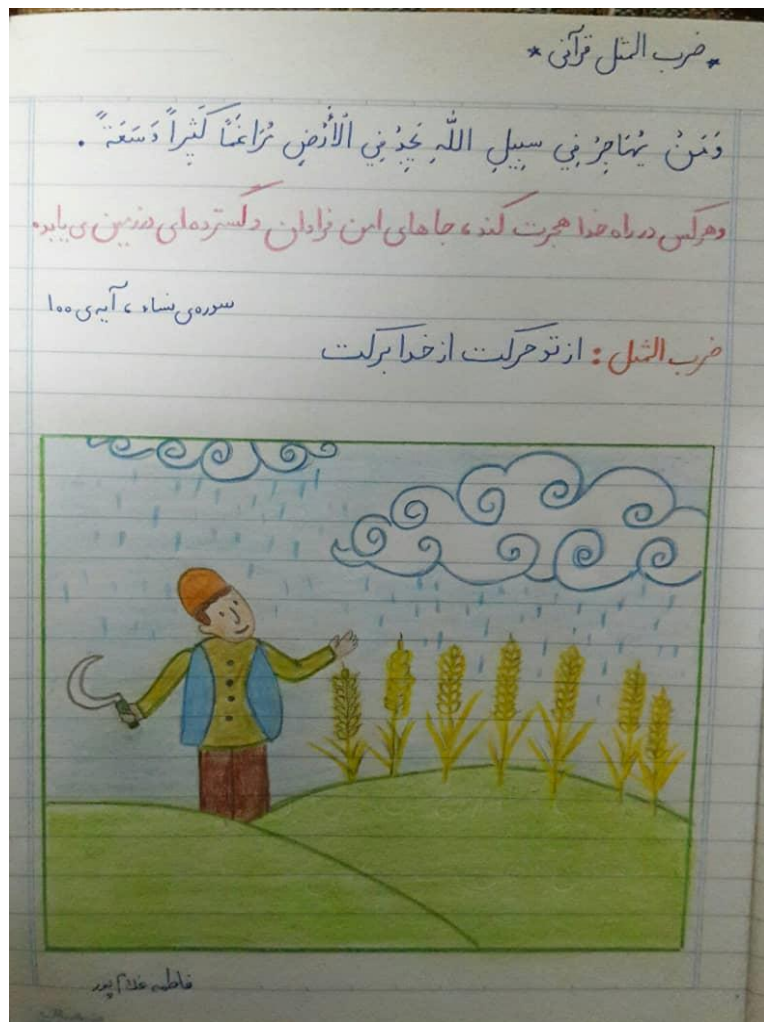 * ضرب المثل قرآنی *
وَمَنْ يُهَاجِرْ فِي سَبِيلِ اللَّهِ يَجِدْ فِي الْأَرْضِ مُرَاغَمًا كَثِيراً وَسَعَةً .
وهرکس در راه خدا هجرت کند، جاهای امن فراوان و گسترده‌ای در زمین می یابد.
سوره‌ی نساء ، آیه‌ی ۱۰۰
ضرب المثل : از تو حرکت از خدا برکت
فاطمه غلام پور